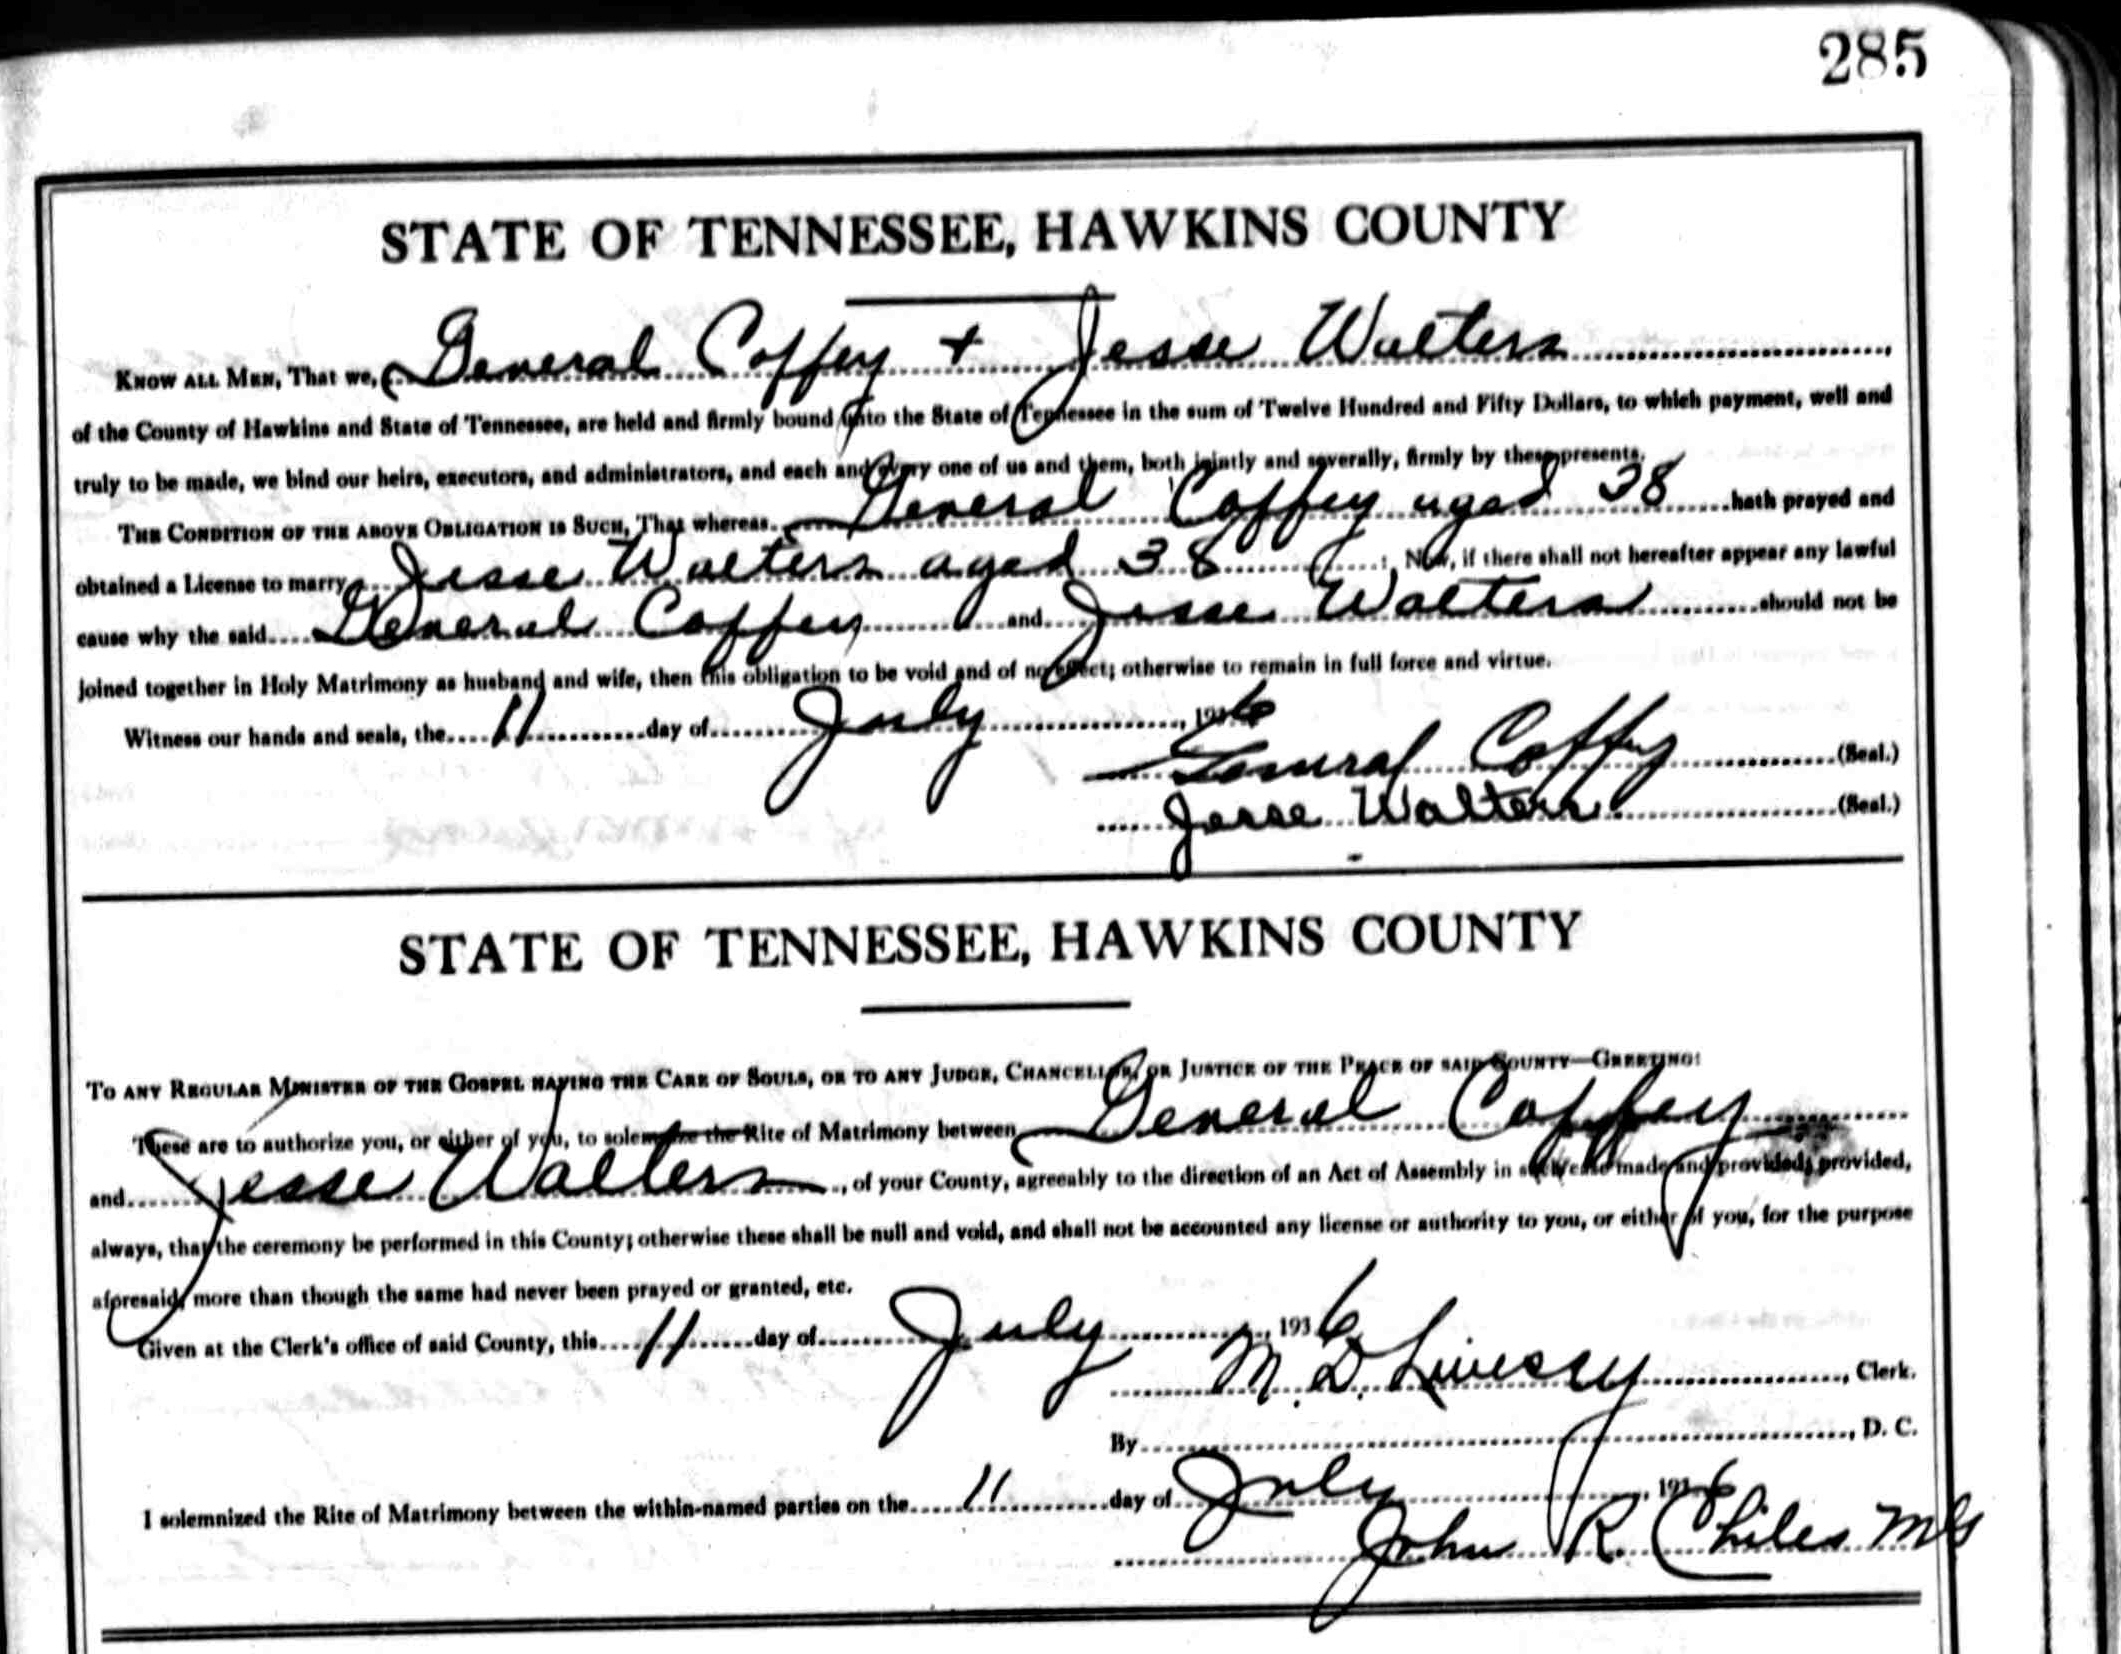 285
STATE OF TENNESSEE, HAWKINS COUNTY
KNOW ALL MEN, That we, General Coffey + Jesse Walters
of the County of Hawkins and State of Tennessee, are held and firmly bound unto the State of Tennessee in the sum of Twelve Hundred and Fifty Dollars, to which payment, well and
truly to be made, we bind our heirs, executors, and administrators, and each and every one of us and them, both jointly and severally, firmly by these presents.
THE CONDITION OF THE ABOVE OBLIGATION IS SUCH, That whereas General Coffey aged 38 hath prayed and
obtained a License to marry Jesse Walters aged 38; Now, if there shall not hereafter appear any lawful
cause why the said General Coffey and Jesse Walters should not be
joined together in Holy Matrimony as husband and wife, then this obligation to be void and of no effect; otherwise to remain in full force and virtue.
Witness our hands and seals, the 11 day of July, 1936
General Coffey (Seal.)
Jesse Walters (Seal.)
STATE OF TENNESSEE, HAWKINS COUNTY
TO ANY REGULAR MINISTER OF THE GOSPEL HAVING THE CARE OF SOULS, OR TO ANY JUDGE, CHANCELLOR, OR JUSTICE OF THE PEACE OF SAID COUNTY—GREETING:
These are to authorize you, or either of you, to solemnize the Rite of Matrimony between General Coffey
and Jesse Walters, of your County, agreeably to the direction of an Act of Assembly in such case made and provided; provided,
always, that the ceremony be performed in this County; otherwise these shall be null and void, and shall not be accounted any license or authority to you, or either of you, for the purpose
aforesaid, more than though the same had never been prayed or granted, etc.
Given at the Clerk's office of said County, this 11 day of July, 1936
M. D. Livesay, Clerk.
By, D. C.
I solemnized the Rite of Matrimony between the within-named parties on the 11 day of July, 1936
John R. Chiles